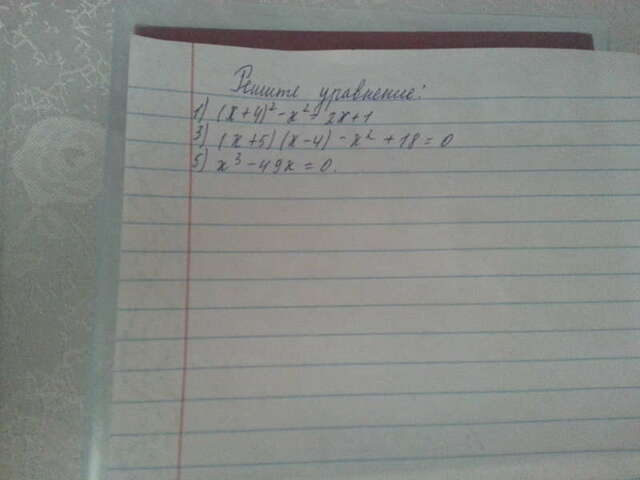 Решите уравнение:
1) (x+4)² - x² = 2x+1
3) (x+5)(x-4) - x² + 18 = 0
5) x³ - 49x = 0.